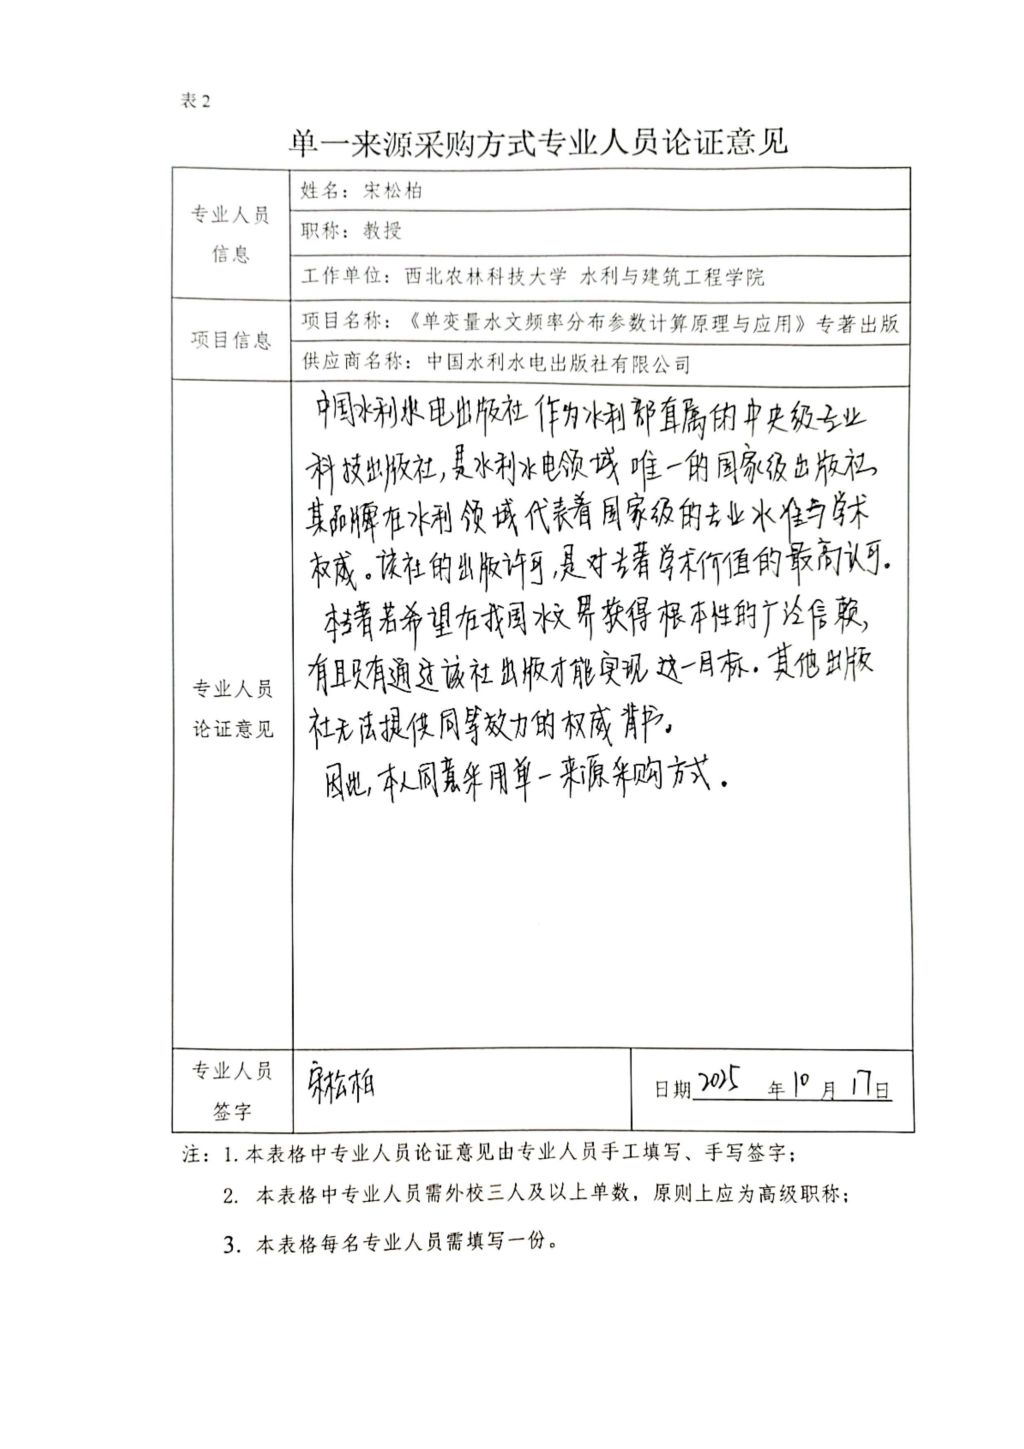 表2
单一来源采购方式专业人员论证意见
专业人员
信息
姓名：宋松柏
职称：教授
工作单位：西北农林科技大学 水利与建筑工程学院
项目信息
项目名称：《单变量水文频率分布参数计算原理与应用》专著出版
供应商名称：中国水利水电出版社有限公司
专业人员
论证意见
中国水利水电出版社作为水利部直属的中央级专业
科技出版社，是水利水电领域唯一的国家级出版社，
其品牌在水利领域代表着国家级的专业水准与学术
权威。该社的出版许可，是对专著学术价值的最高认可。
本专著若希望在我国水文界获得根本性的广泛信赖，
有且只有通过该社出版才能实现这一目标。其他出版
社无法提供同等效力的权威背书。
因此，本人同意采用单一来源采购方式。
专业人员
签字
宋松柏
日期 2025 年 10 月 17 日
注：1. 本表格中专业人员论证意见由专业人员手工填写、手写签字；
2. 本表格中专业人员需外校三人及以上单数，原则上应为高级职称；
3. 本表格每名专业人员需填写一份。